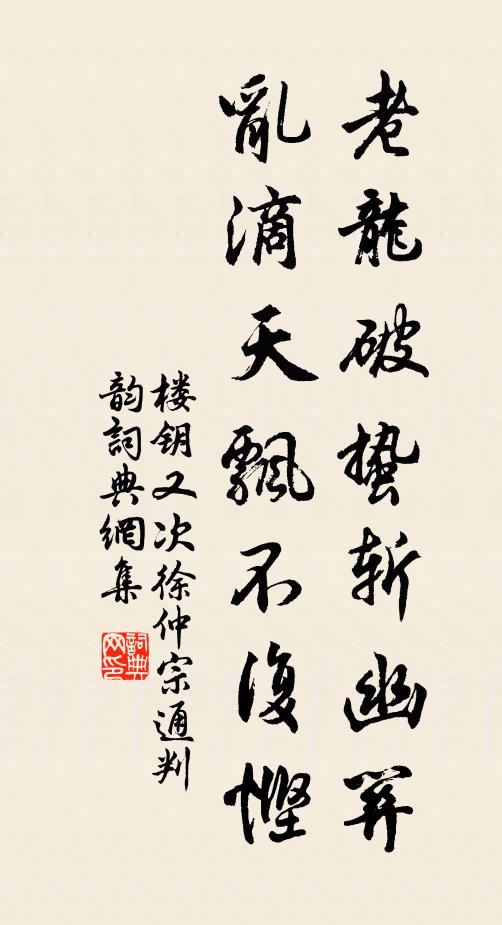 老龍破蟄斩幽羿
亂滴天飄不復慳
楼钥又次徐仲宗通判
韵詞典網集
詞典网印